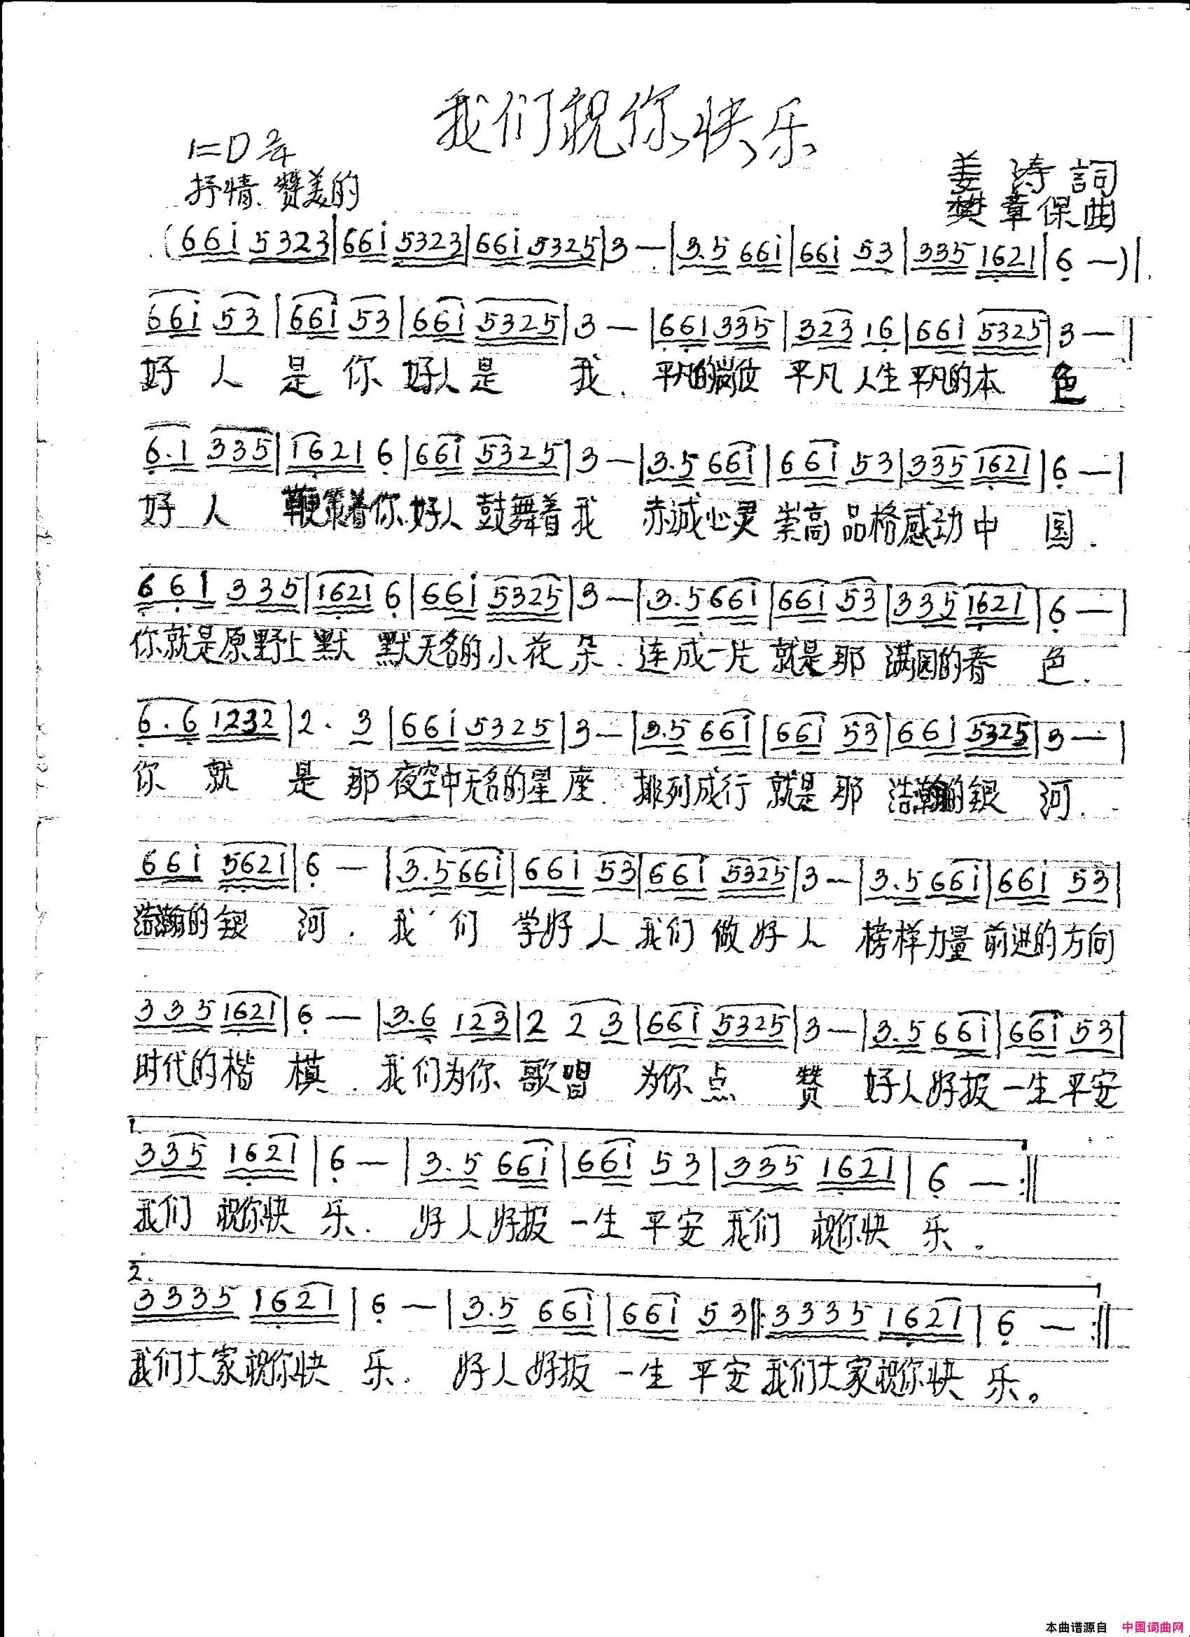 我们祝你快乐
1=D 2/4
抒情、赞美的
姜涛詞
樊章保曲
(66i 5323|66i 5323|66i 5325|3 —|3.5 66i|66i 53|335 1621|6 —)|
66i 53|66i 53|66i 5325|3 —|661 335|323 16|66i 5325|3 —|
好人是你好人是我.平凡的岗位平凡人生平凡的本色
6.1 335|1621 6|66i 5325|3 —|3.5 66i|66i 53|335 1621|6 —|
好人鞭策着你.好人鼓舞着我 赤诚心灵崇高品格感动中国.
661 335|1621 6|66i 5325|3 —|3.5 66i|66i 53|335 1621|6 —|
你就是原野上默默无名的小花朵.连成一片就是那满园的春色.
6.6 1232|2. 3|66i 5325|3 —|3.5 66i|66i 53|66i 5325|3 —|
你就是那夜空中无名的星座.排列成行就是那浩瀚的银河.
66i 5621|6 —|3.5 66i|66i 53|66i 5325|3 —|3.5 66i|66i 53|
浩瀚的银河.我们学好人我们做好人榜样力量前进的方向
335 1621|6 —|3.6 123|2 23|66i 5325|3 —|3.5 66i|66i 53|
时代的楷模.我们为你歌唱为你点赞好人好报一生平安
1.
335 1621|6 —|3.5 66i|66i 53|335 1621|6 —:||
我们祝你快乐.好人好报一生平安我们祝你快乐.
2.
3335 1621|6 —|3.5 66i|66i 53||:3335 1621|6 —:||
我们大家祝你快乐.好人好报一生平安我们大家祝你快乐。
本曲谱源自 中国词曲网